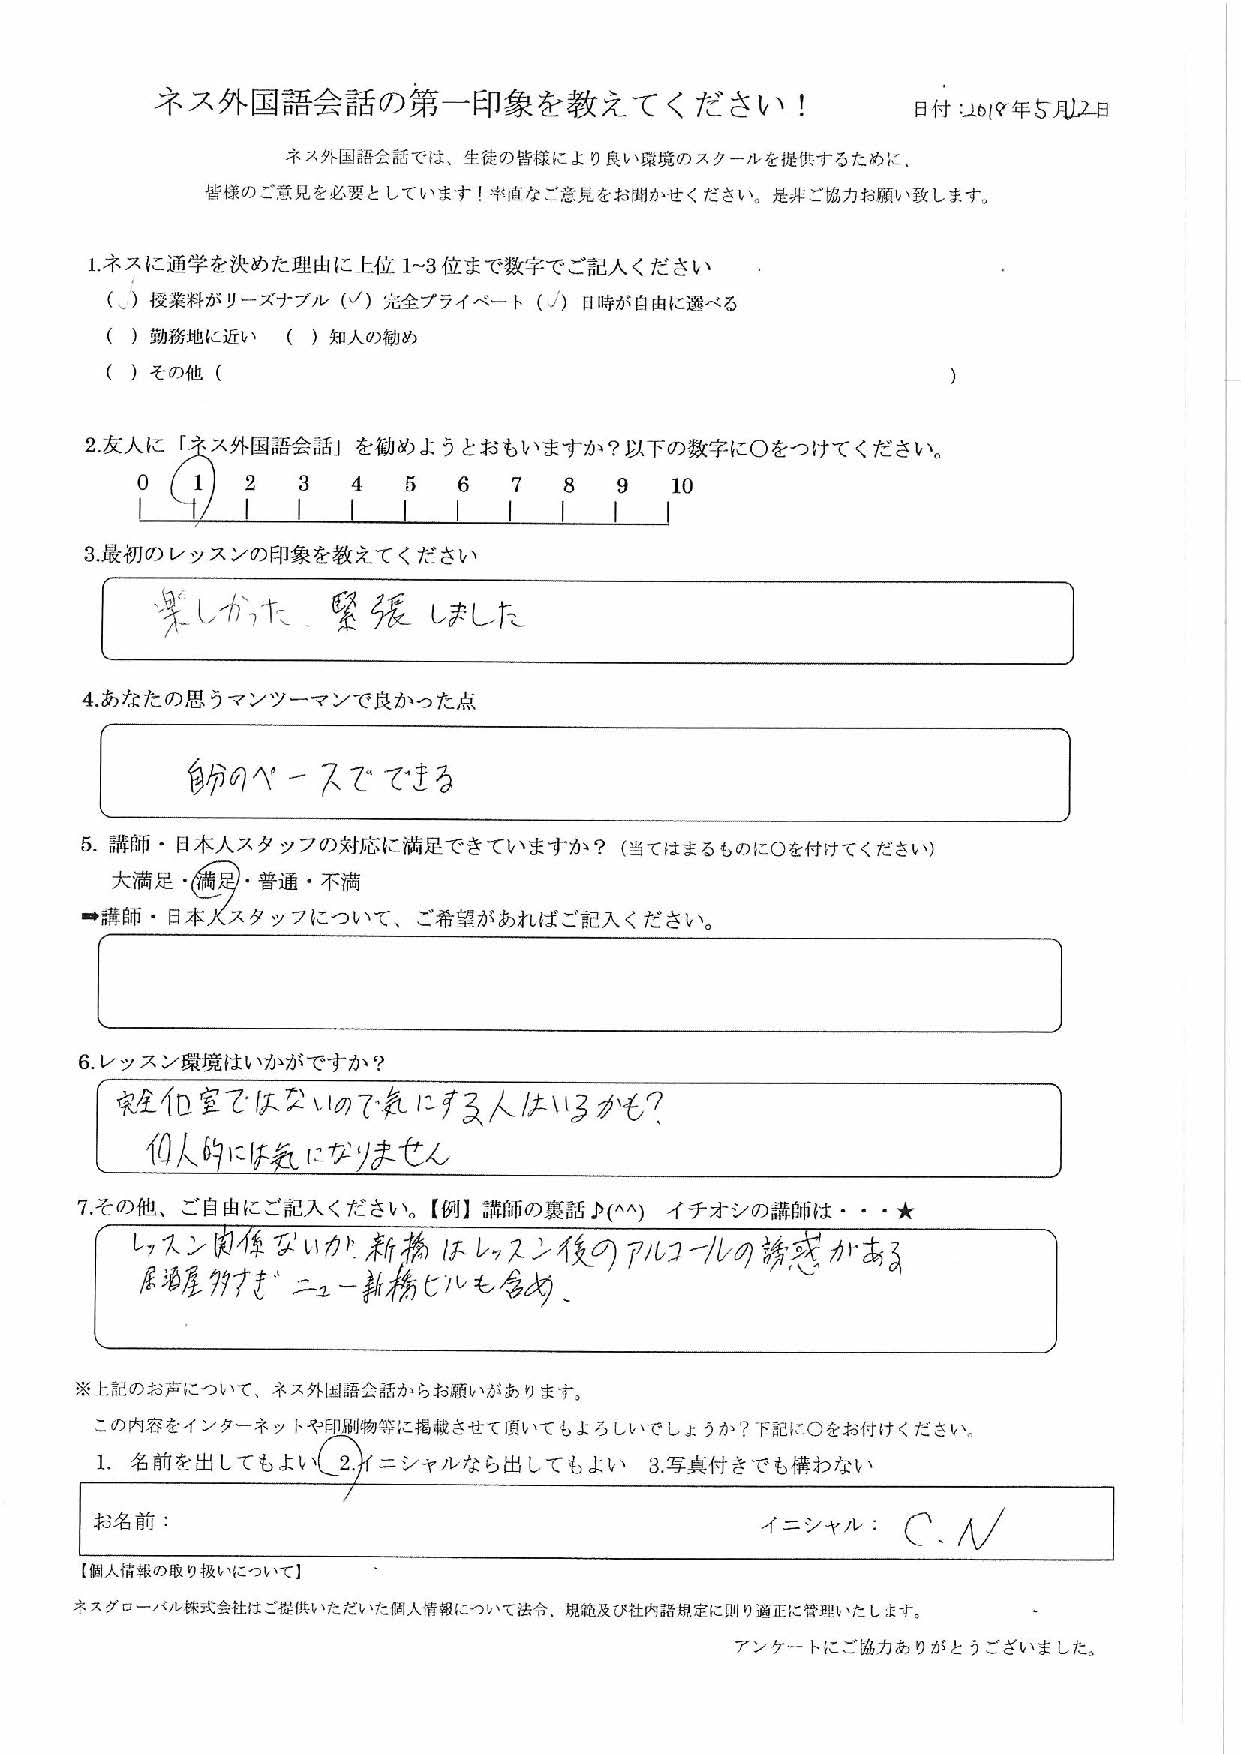 ネス外国語会話の第一印象を教えてください！
日付：2018年5月12日
ネス外国語会話では、生徒の皆様により良い環境のスクールを提供するために、
皆様のご意見を必要としています！率直なご意見をお聞かせください。是非ご協力お願い致します。
1.ネスに通学を決めた理由に上位 1~3 位まで数字でご記入ください
（✓）授業料がリーズナブル（✓）完全プライベート（✓）日時が自由に選べる
（ ）勤務地に近い （ ）知人の勧め
（ ）その他（ ）
2.友人に「ネス外国語会話」を勧めようとおもいますか？以下の数字に〇をつけてください。
0 1 2 3 4 5 6 7 8 9 10
3.最初のレッスンの印象を教えてください
楽しかった、緊張しました
4.あなたの思うマンツーマンで良かった点
自分のペースでできる
5. 講師・日本人スタッフの対応に満足できていますか？（当てはまるものに〇を付けてください）
大満足・満足・普通・不満
➡講師・日本人スタッフについて、ご希望があればご記入ください。
6.レッスン環境はいかがですか？
完全個室ではないので気にする人はいるかも？
個人的には気になりません
7.その他、ご自由にご記入ください。【例】講師の裏話♪(^^) イチオシの講師は・・・★
レッスン関係ないが、新橋はレッスン後のアルコールの誘惑がある
居酒屋多すぎ ニュー新橋ビルも含め、
※上記のお声について、ネス外国語会話からお願いがあります。
この内容をインターネットや印刷物等に掲載させて頂いてもよろしいでしょうか？下記に〇をお付けください。
1. 名前を出してもよい 2.イニシャルなら出してもよい 3.写真付きでも構わない
お名前： イニシャル： C.N
【個人情報の取り扱いについて】
ネスグローバル株式会社はご提供いただいた個人情報について法令、規範及び社内諸規定に則り適正に管理いたします。
アンケートにご協力ありがとうございました。